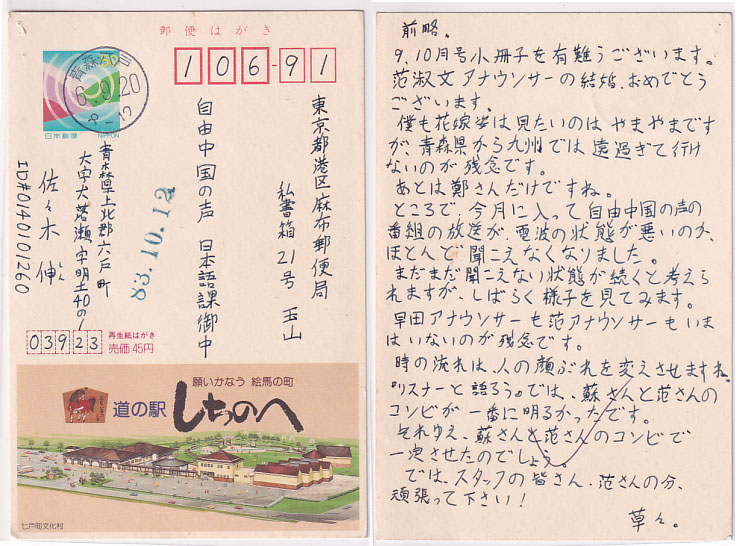 郵便はがき
50
日本郵便
NIPPON
青森
6.9.20
8-12
106-91
東京都港区麻布郵便局
私書箱21号 玉山
自由中国の声 日本語課御中
83.10.12
青森県上北郡六戸町
大字犬落瀬字明土40の1
佐々木 伸
ID#0140101260
03923
再生紙はがき
売価45円
願いかなう 絵馬の町
道の駅 しちのへ
七戸町文化村
前略。
9,10月号小冊子を有難うございます。
范淑文アナウンサーの結婚、おめでとう
ございます。
僕も花嫁姿は見たいのはやまやまです
が、青森県から九州では遠過ぎて行け
ないのが残念です。
あとは鄭さんだけですね。
ところで、今月に入って自由中国の声の
番組の放送が、電波の状態が悪いのか、
ほとんど聞こえなくなりました。
まだまだ聞こえない状態が続くと考えら
れますが、しばらく様子を見てみます。
早田アナウンサーも范アナウンサーもいま
はいないのが残念です。
時の流れは、人の顔ぶれを変えさせますね。
"リスナーと語ろう"では、蘇さんと范さんの
コンビが一番に明るかったです。
それゆえ、蘇さんと范さんのコンビで
一次させたのでしょう。
では、スタッフの皆さん、范さんの分、
頑張って下さい!
草々。